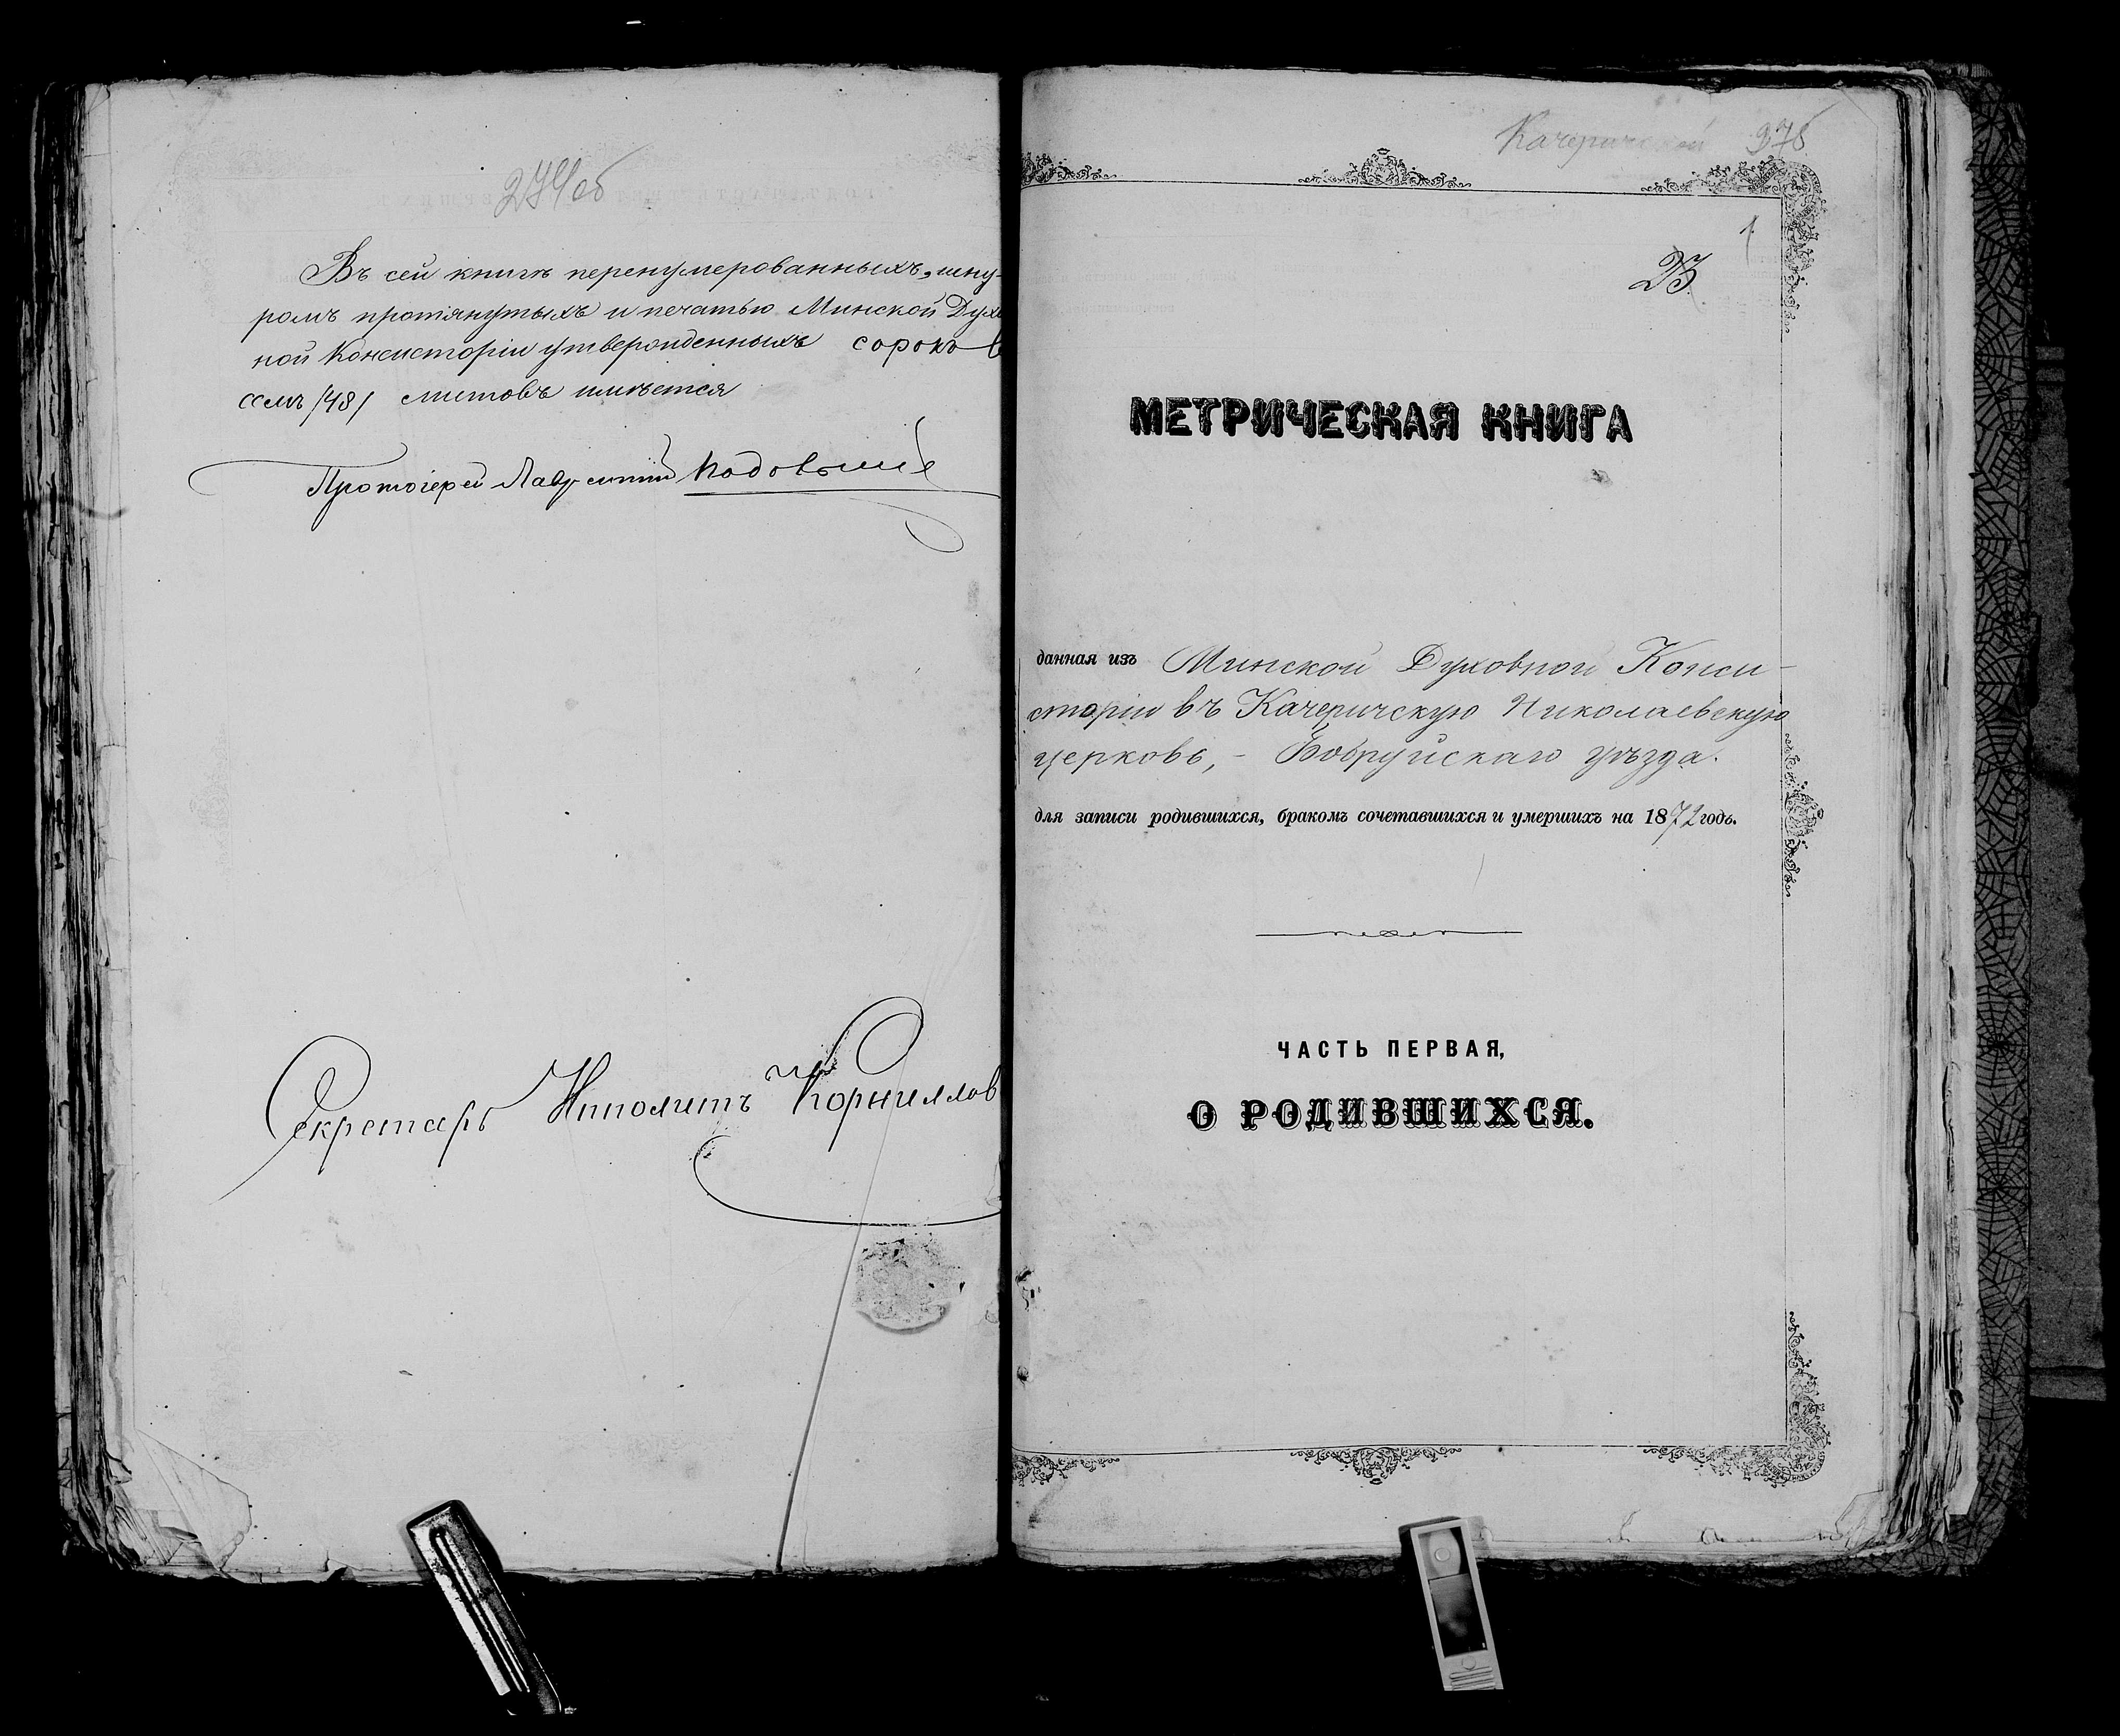 274об
Въ сей книгѣ перенумерованныхъ, шну-
ромъ протянутыхъ и печатью Минской Духо
ной Консисторіи утвержденныхъ сорокъ в
семь /48/ листовъ имѣется
Протоіерей Лаврентій
Секретарь Ипполитъ Корниллов
Качеричской 275
1
23
МЕТРИЧЕСКАЯ КНИГА
данная изъ Минской Духовной Конси-
сторіи въ Качеричскую Николаевскую
церковь, - Бобруйскаго уѣзда.
для записи родившихся, бракомъ сочетавшихся и умершихъ на 1872 годъ.
ЧАСТЬ ПЕРВАЯ,
О РОДИВШИХСЯ.